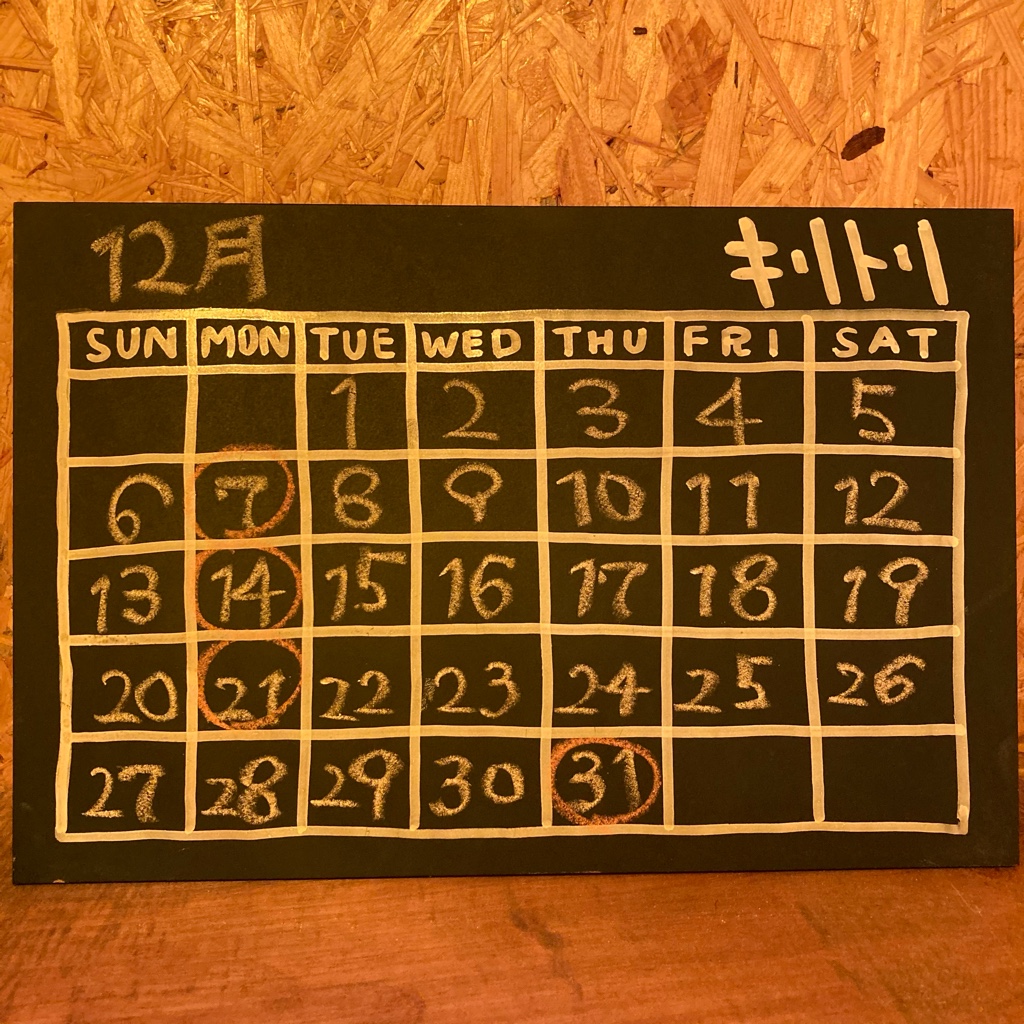 12月 キリトリ
SUN MON TUE WED THU FRI SAT
1 2 3 4 5
6 7 8 9 10 11 12
13 14 15 16 17 18 19
20 21 22 23 24 25 26
27 28 29 30 31